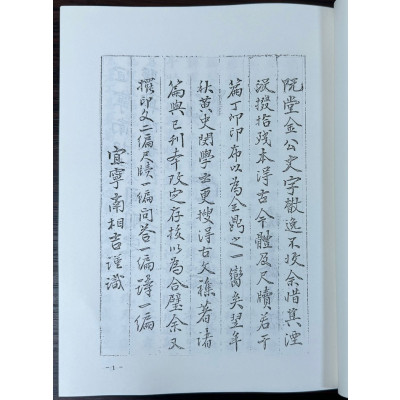 阮堂金公文字散逸不收余惜其湮
沒掇拾残本得古今體及尺牘若干
篇丁卯印布以為全鼎之一臠矣翌年
秋黄史閔學士更搜得古文襍著諸
篇與已刊本改定存抜以為合璧余又
攟印文二編尺牘一編問答一編譯一編
宜寧南相吉謹識
-1-